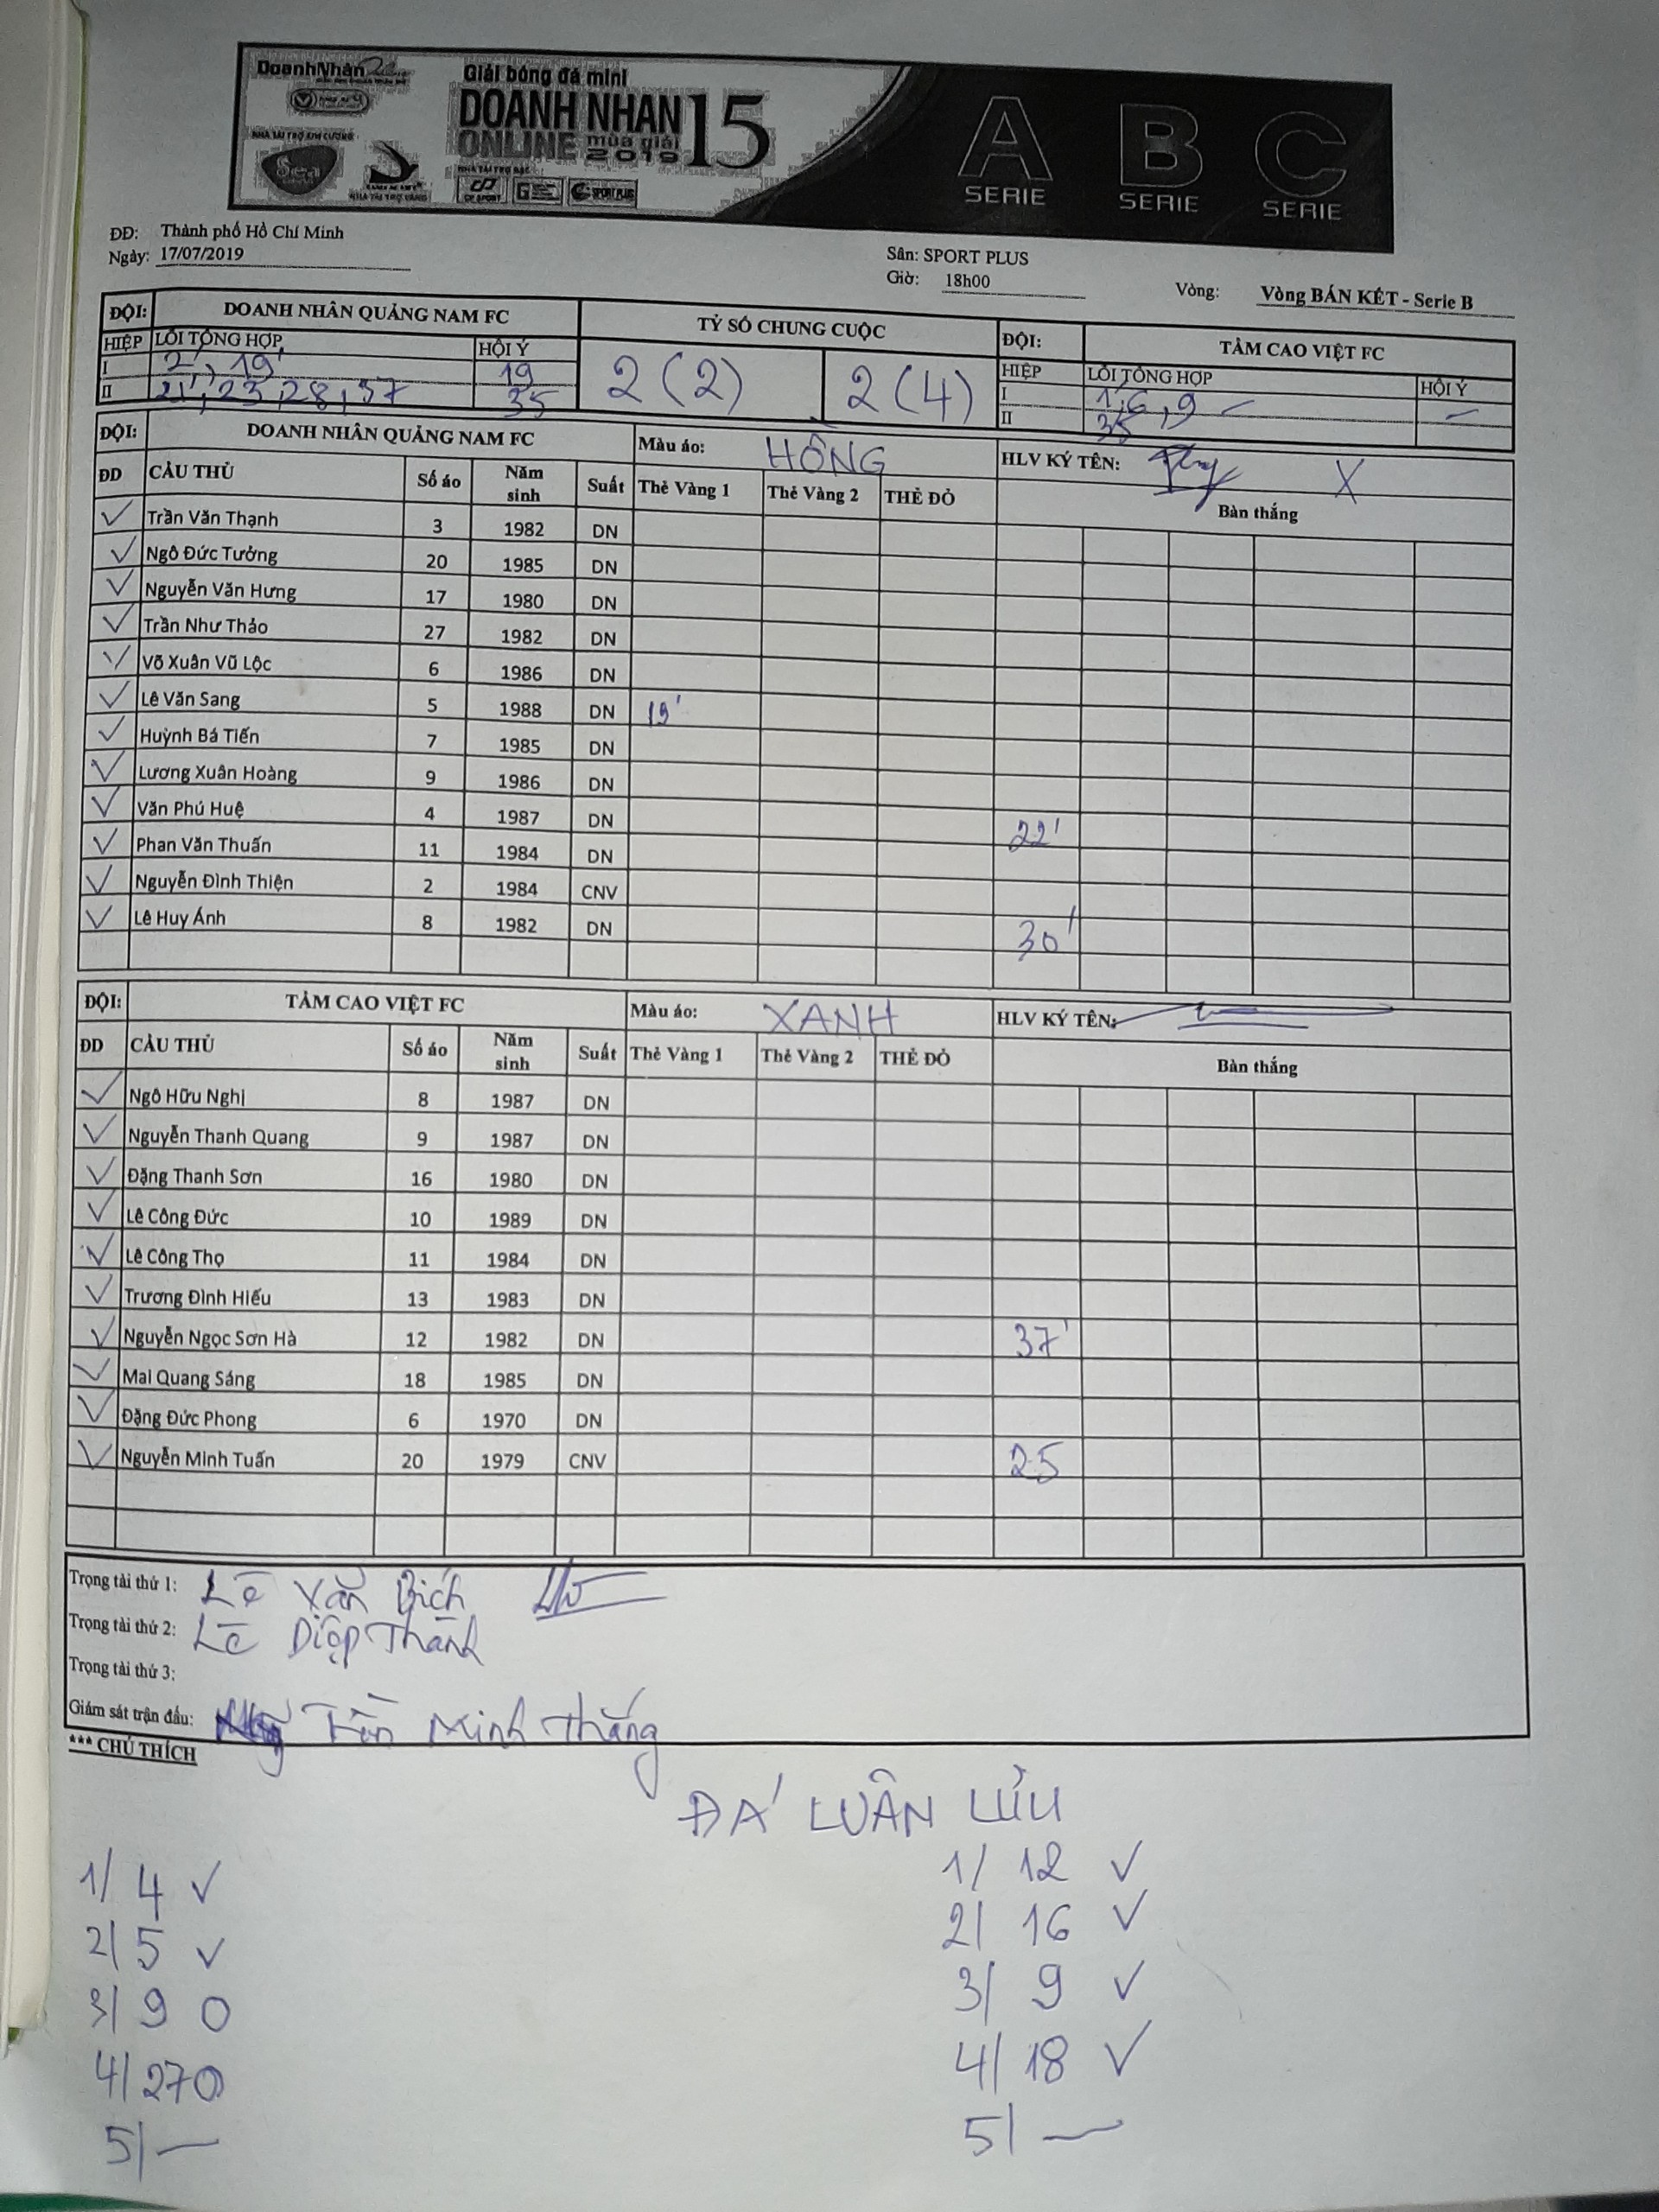 DoanhNhan
Giải bóng đá mini
DOANH NHAN
ONLINE mùa giải 2019 15
NHÀ TÀI TRỢ KIM CƯƠNG
Sea
NHÀ TÀI TRỢ VÀNG
NHÀ TÀI TRỢ BẠC
CP SPORT
SPORT PLUS
A SERIE
B SERIE
C SERIE
ĐĐ: Thành phố Hồ Chí Minh
Ngày: 17/07/2019
Sân: SPORT PLUS
Giờ: 18h00
Vòng: Vòng BÁN KẾT - Serie B
ĐỘI: DOANH NHÂN QUẢNG NAM FC TỶ SỐ CHUNG CUỘC ĐỘI: TẦM CAO VIỆT FC
HIỆP LỖI TỔNG HỢP HỘI Ý 2 (2) 2 (4) HIỆP LỖI TỔNG HỢP HỘI Ý
I 2', 19' 19 I 1', 6, 9 – –
II 21', 23, 28, 37 35 II 35
ĐỘI: DOANH NHÂN QUẢNG NAM FC Màu áo: HỒNG HLV KÝ TÊN: X
ĐD CẦU THỦ Số áo Năm sinh Suất Thẻ Vàng 1 Thẻ Vàng 2 THẺ ĐỎ Bàn thắng
✓ Trần Văn Thạnh 3 1982 DN
✓ Ngô Đức Tưởng 20 1985 DN
✓ Nguyễn Văn Hưng 17 1980 DN
✓ Trần Như Thảo 27 1982 DN
✓ Võ Xuân Vũ Lộc 6 1986 DN
✓ Lê Văn Sang 5 1988 DN 19'
✓ Huỳnh Bá Tiến 7 1985 DN
✓ Lương Xuân Hoàng 9 1986 DN
✓ Văn Phú Huệ 4 1987 DN 22'
✓ Phan Văn Thuấn 11 1984 DN
✓ Nguyễn Đình Thiện 2 1984 CNV
✓ Lê Huy Ánh 8 1982 DN 30'
ĐỘI: TẦM CAO VIỆT FC Màu áo: XANH HLV KÝ TÊN:
ĐD CẦU THỦ Số áo Năm sinh Suất Thẻ Vàng 1 Thẻ Vàng 2 THẺ ĐỎ Bàn thắng
✓ Ngô Hữu Nghị 8 1987 DN
✓ Nguyễn Thanh Quang 9 1987 DN
✓ Đặng Thanh Sơn 16 1980 DN
✓ Lê Công Đức 10 1989 DN
✓ Lê Công Thọ 11 1984 DN
✓ Trương Đình Hiếu 13 1983 DN
✓ Nguyễn Ngọc Sơn Hà 12 1982 DN 37'
✓ Mai Quang Sáng 18 1985 DN
✓ Đặng Đức Phong 6 1970 DN
✓ Nguyễn Minh Tuấn 20 1979 CNV 25
Trọng tài thứ 1: Lê Văn Bích
Trọng tài thứ 2: Lê Diệp Thành
Trọng tài thứ 3:
Giám sát trận đấu: Trần Minh Thắng
*** CHÚ THÍCH
ĐÁ LUÂN LƯU
1/ 4 ✓ 1/ 12 ✓
2/ 5 ✓ 2/ 16 ✓
3/ 9 0 3/ 9 ✓
4/ 27 0 4/ 18 ✓
5/ — 5/ —